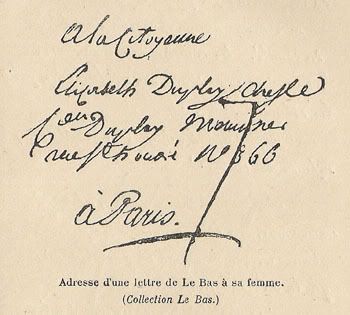 A la Citoyenne
Elizabeth Duplay, chez le
C.en Duplay Menuisier
rue St honoré N° 366
à Paris.
Adresse d'une lettre de Le Bas à sa femme.
(Collection Le Bas.)